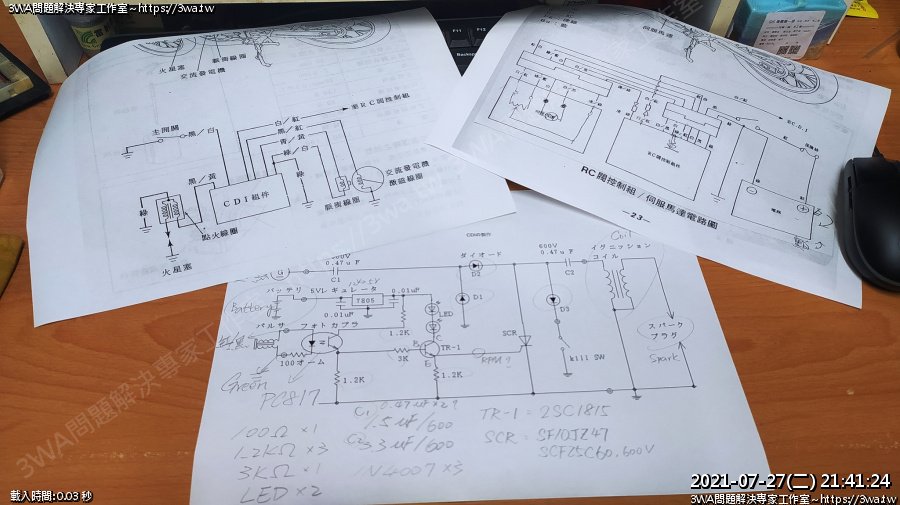 3WA問題解決專家工作室~https://3wa.tw
火星塞
交流發電機
主開關
黑／白
白／紅
黑／紅
青／黃
綠／白
至RC閥控制組
黑／黃
綠
CDI組件
綠
點火線圈
火星塞
脈衝線圈
交流發電機
激磁線圈
伺服馬達
RC閥控制組／伺服馬達電路圖
-23-
CDIの製作
600V
0.47uF
C1
ダイオード
D2
600V
0.47uF
C2
Coil
イグニッション
コイル
バッテリ
Battery
5Vレギュレータ
12V→5V
7805
0.01uF
0.01uF
LED
D1
D3
SCR
kill SW
スパーク
プラグ
Spark
パルサ
フォトカプラ
1.2K
100オーム
Green
PC817
3K
B
C
E
TR-1
RPM?
1.2K
1.2K
100Ω×1
1.2KΩ×3
3KΩ×1
LED×2
C1 0.47uF×2?
1.5uF/600
C2 3.3uF/600
1N4007×3
TR-1=2SC1815
SCR=SF10JZ47
SCF25C60,600V
2021-07-27(二) 21:41:24
載入時間:0.03 秒
3WA問題解決專家工作室~https://3wa.tw